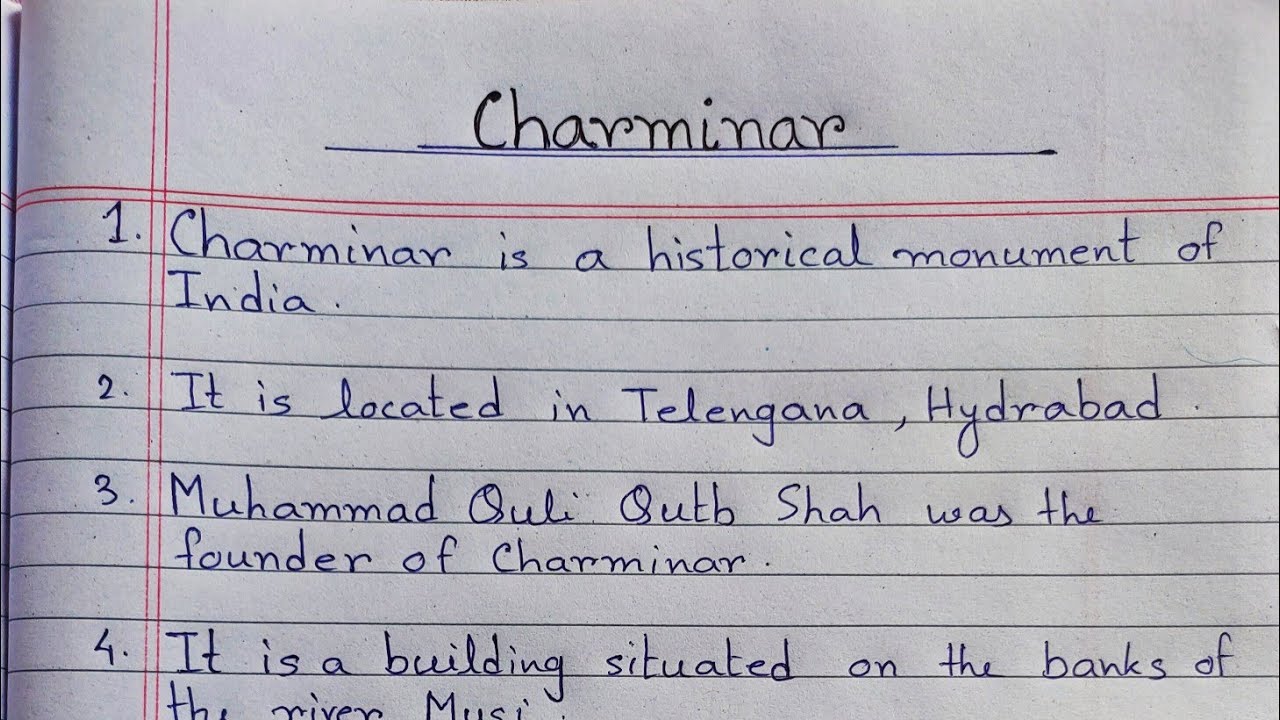 Charminar
1. Charminar is a historical monument of
India.
2. It is located in Telengana, Hydrabad.
3. Muhammad Quli Qutb Shah was the
founder of Charminar.
4. It is a building situated on the banks of
the river Musi.